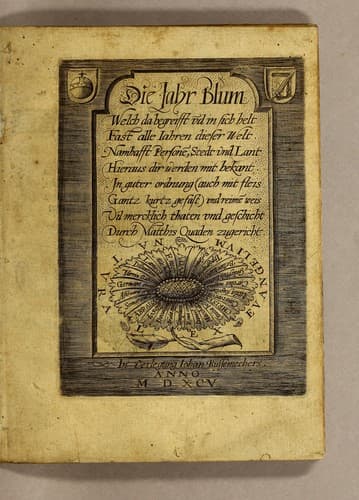 Die Jahr Blum
Welch da begreifft vnd in sich helt
Fast alle Iahren dieser Welt
Namhafft Persone, Stedt vnd Lant
Hieraus dir werden mit bekant.
In guter ordnung (auch mit fleis
Gantz kurtz gefast) vnd reime weis
Vil mercklich thaten vnd geschicht
Durch Matthis Quaden zugericht.
NATVRA
LEX
EVANGELIUM
In Verlegung Iohan Bussemechers.
ANNO
M D XCV